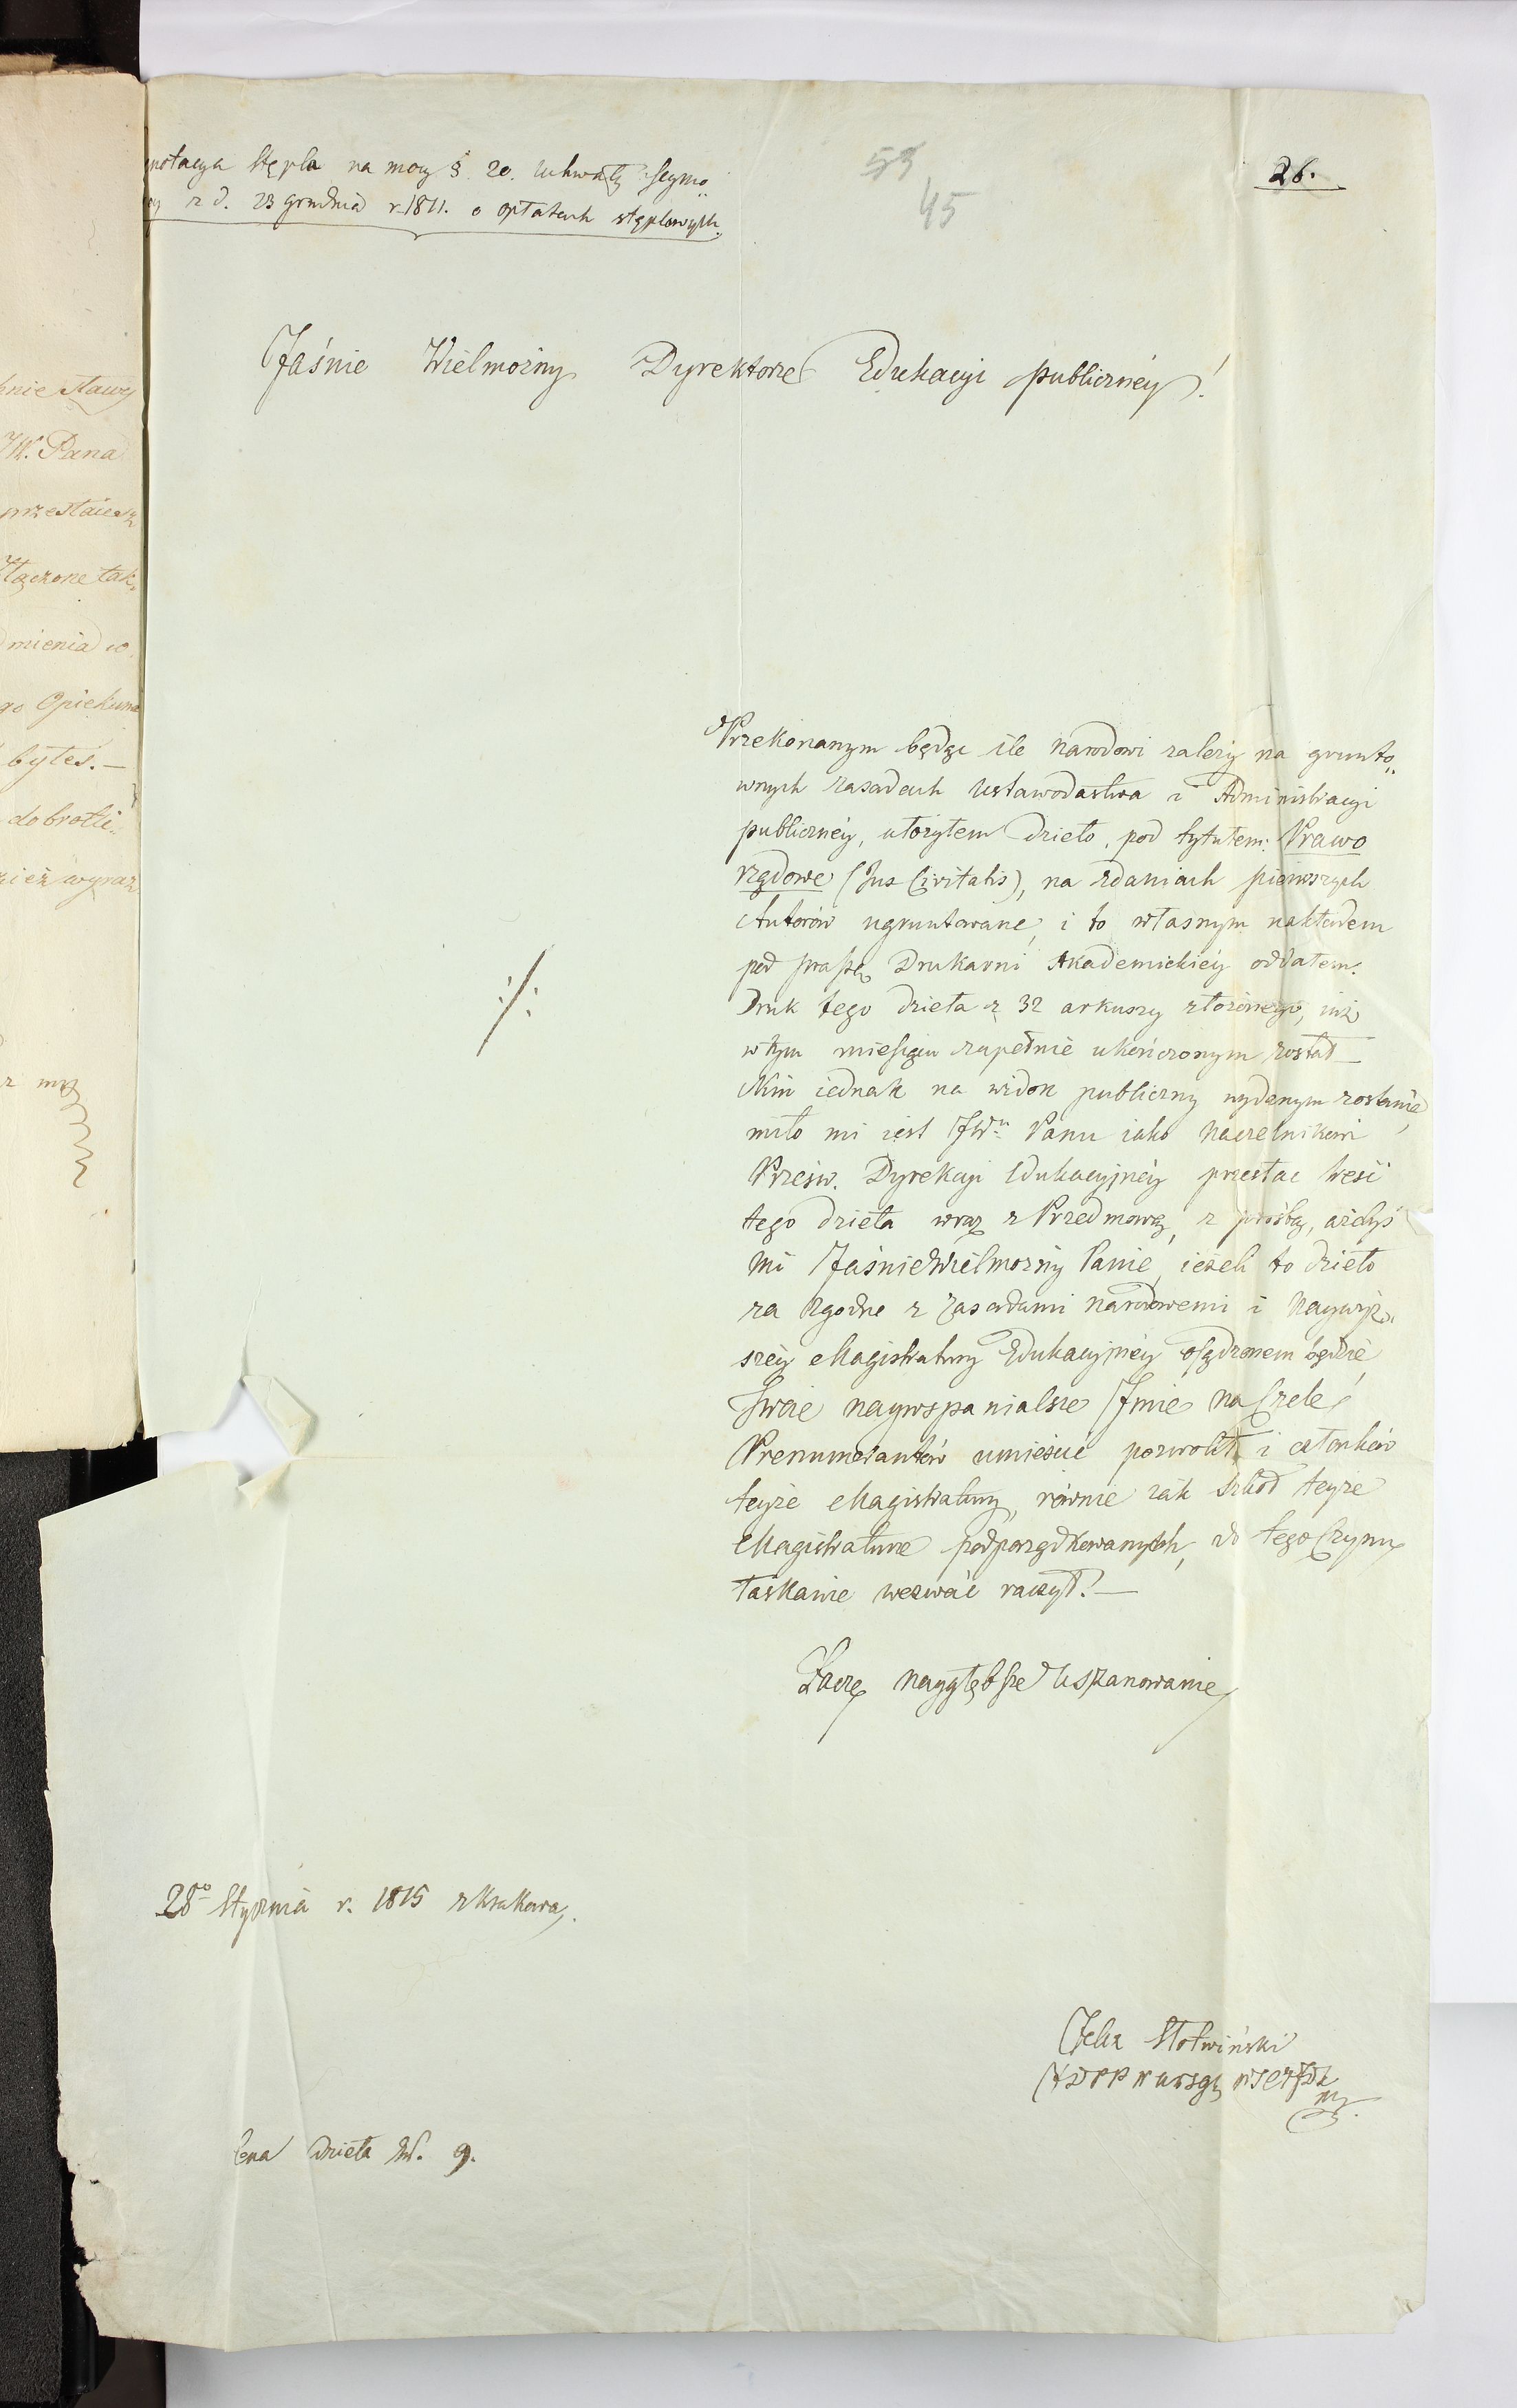 notacya stępla na mocy § 20. Uchwały Seymo„
z d. 23 grudnia r. 1811. o opłatach stęplowych.
53
45
26.
Jaśnie Wielmożny Dyrektorze Edukacyi publiczney!
Przekonanym będąc ile narodowi zależy na grunto„
wnych zasadach Ustawodastwa i Administracyi
publiczney, ułożyłem dzieło, pod tytułem: Prawo
rządowe (Jus Civitatis), na zdaniach pierwszych
Autorów ugruntowane, i to własnym nakładem
pod prassę Drukarni Akademickiey oddałem.
Druk tego dzieła z 32 arkuszy złożonego, iuż
w tym miesiącu zupełnie ukończonym został —
Nim iednak na widok publiczny wydanym zostanie,
miło mi iest JW. Panu iako Naczelnikowi
Prześw. Dyrekcyi Edukacyjney przesłać treść
tego dzieła wraz z Przedmową, z prośbą, ażebyś
mi JaśnieWielmożny Panie, ieżeli to dzieło
za zgodne z zasadami narodowemi i Naywyż„
széy Magistratury Edukacyjney osądzonem będzie,
Swoie naywspanialsze Jmie na Czele
Prenumerantów umieścić pozwolił, i członków
teyże Magistratury, równie iak szkół teyże
Magistraturze podporządkowanych, do tego Czynu
łaskawie wezwać raczył. —
:/:
Łączę naygłębsze Uszanowanie
28º Stycznia r. 1815 z Krakowa.
Felix Słotwiński
Cena dzieła Zł. 9.
hnie sławy
JW. Pana
przestaiesz
złączone tak„
mienia w
go Opiekuna
byłeś. —
dobroti„
nież wyraz